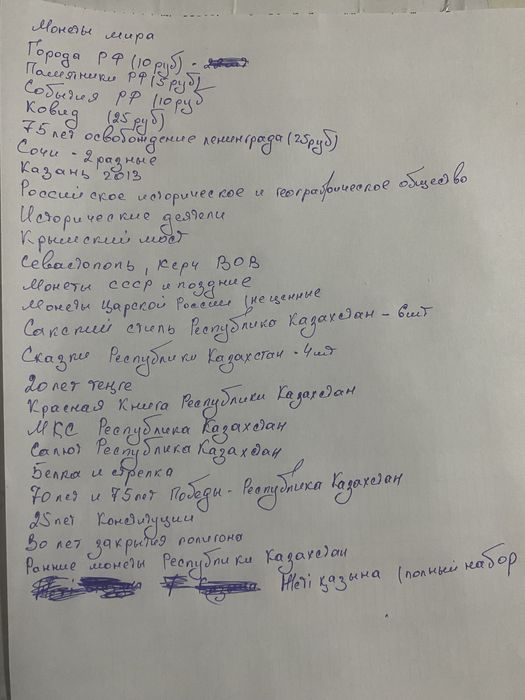 Монеты мира
Города РФ (10 руб) -
Памятники РФ (5 руб)
События РФ (10 руб
Ковид (25 руб)
75 лет освобождение ленинграда (25 руб)
Сочи - 2 разные
Казань 2013
Российское историческое и географическое общество
Исторические деятели
Крымский мост
Севастополь, Керч ВОВ
Монеты СССР и поздние
Монеты Царской России (нещенные
Сакский стиль Республика Казахстан - 6 шт
Сказки Республики Казахстан - 4 шт
20 лет тенге
Красная Книга Республики Казахстан
МКС Республика Казахстан
Салют Республика Казахстан
Белка и стрелка
70 лет и 75 лет Победы - Республика Казахстан
25 лет Конституции
30 лет закрытия полигона
Ранние монеты Республики Казахстан
Жеті қазына (полный набор